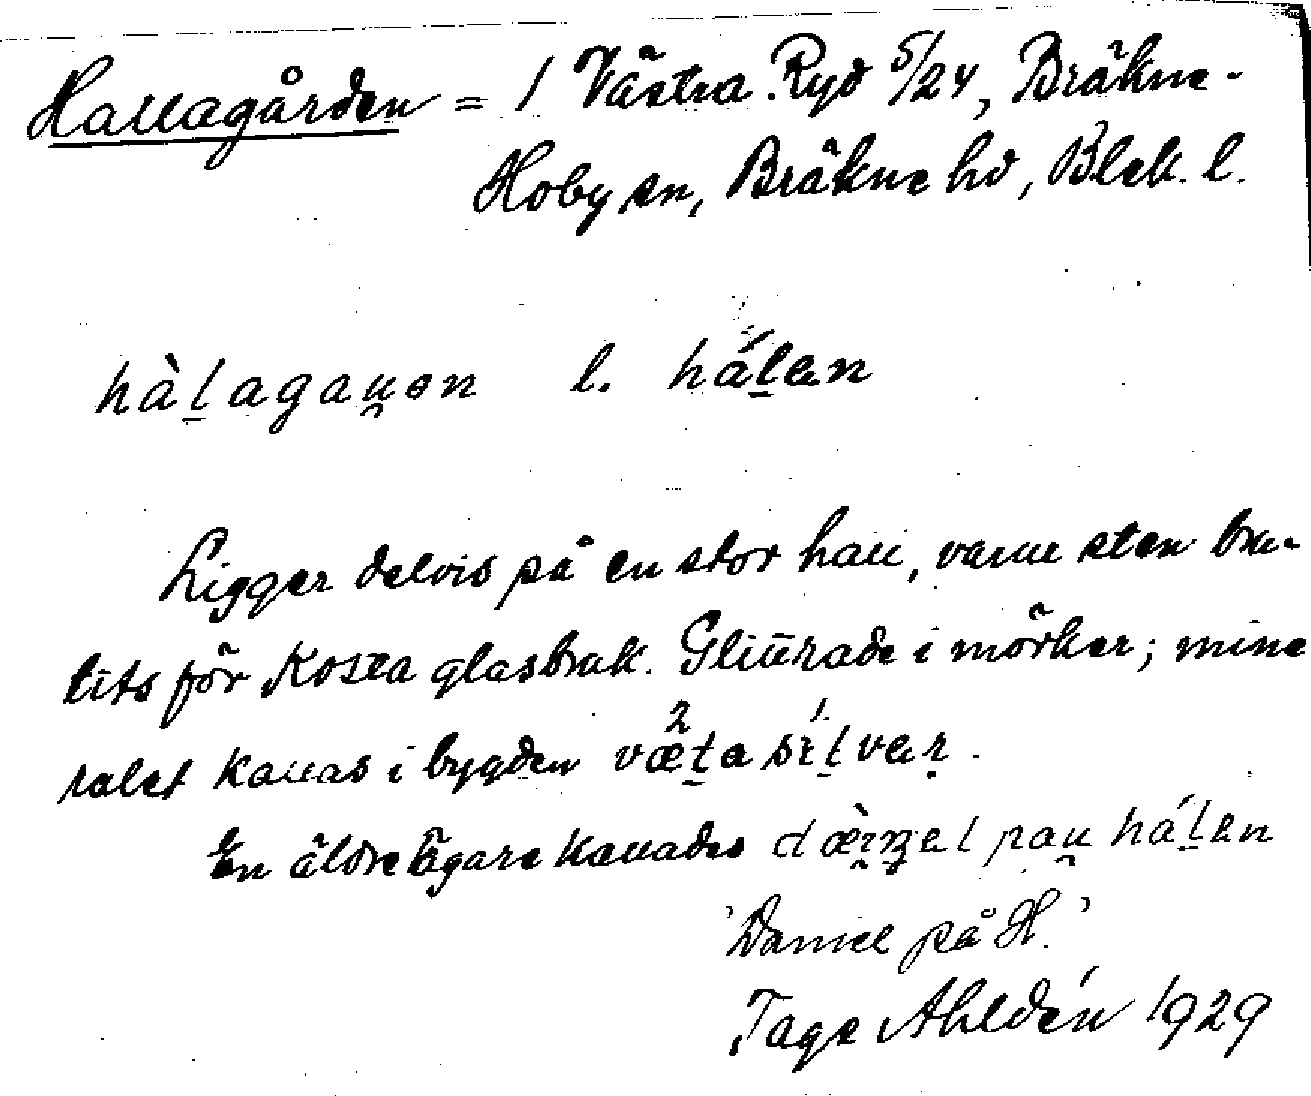 Hallagården = 1 Västra Ryd 5/24, Bräkne-
Hoby sn, Bräkne hd, Blek. l.
hàl̲agau̯ən l. hál̲en
Ligger delvis på en stor hall, varur sten bru-
tits för Kosta glasbruk. Glittrade i mörker; mine
ralet kallas i bygden væ̂t̲a síl̲vaṛ.
En äldre ägare kallades pau̯ hál̲en
'Daniel på H.'
Tage Ahldén 1929